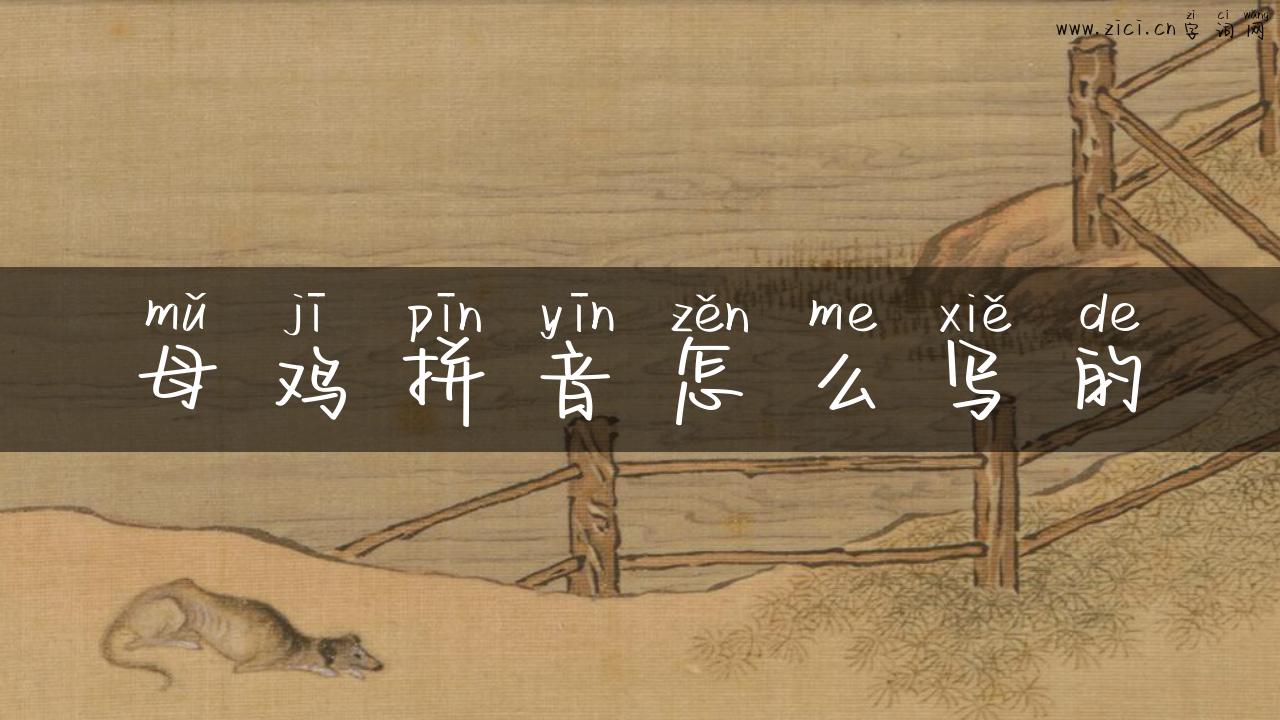 zì cí wǎng
www.zici.cn 字词网
mǔ jī pīn yīn zěn me xiě de
母鸡拼音怎么写的